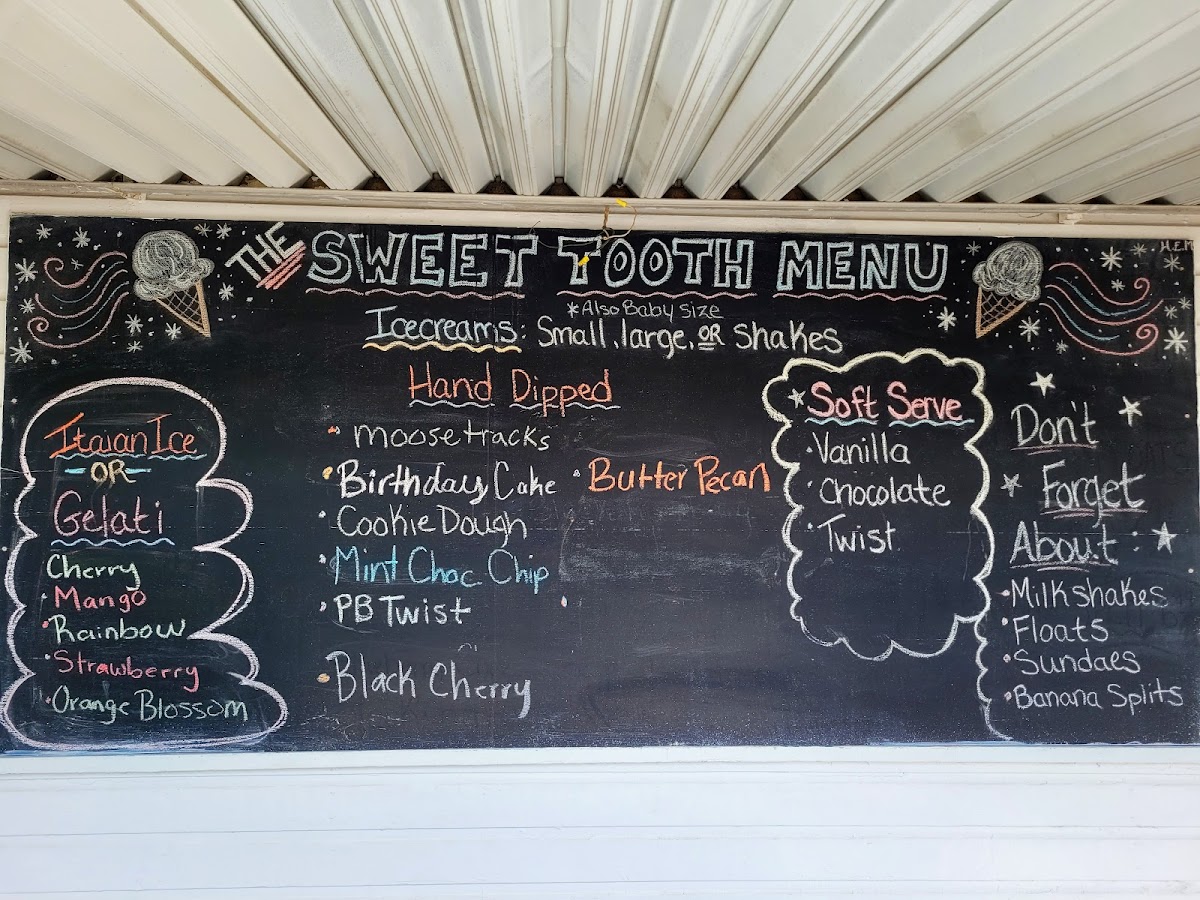 THE SWEET TOOTH MENU
H.E.M
*Also Baby Size
Icecreams: Small, large, OR Shakes
Itaian Ice
-OR-
Gelati
Cherry
• Mango
• Rainbow
• Strawberry
• Orange Blossom
Hand Dipped
• moosetracks
• Birthday Cake
• Cookie Dough
• Mint Choc Chip
• PB Twist
• Black Cherry
• Butter Pecan
Soft Serve
• Vanilla
• Chocolate
• Twist
Don't
Forget
About:
• Milkshakes
• Floats
• Sundaes
• Banana Splits